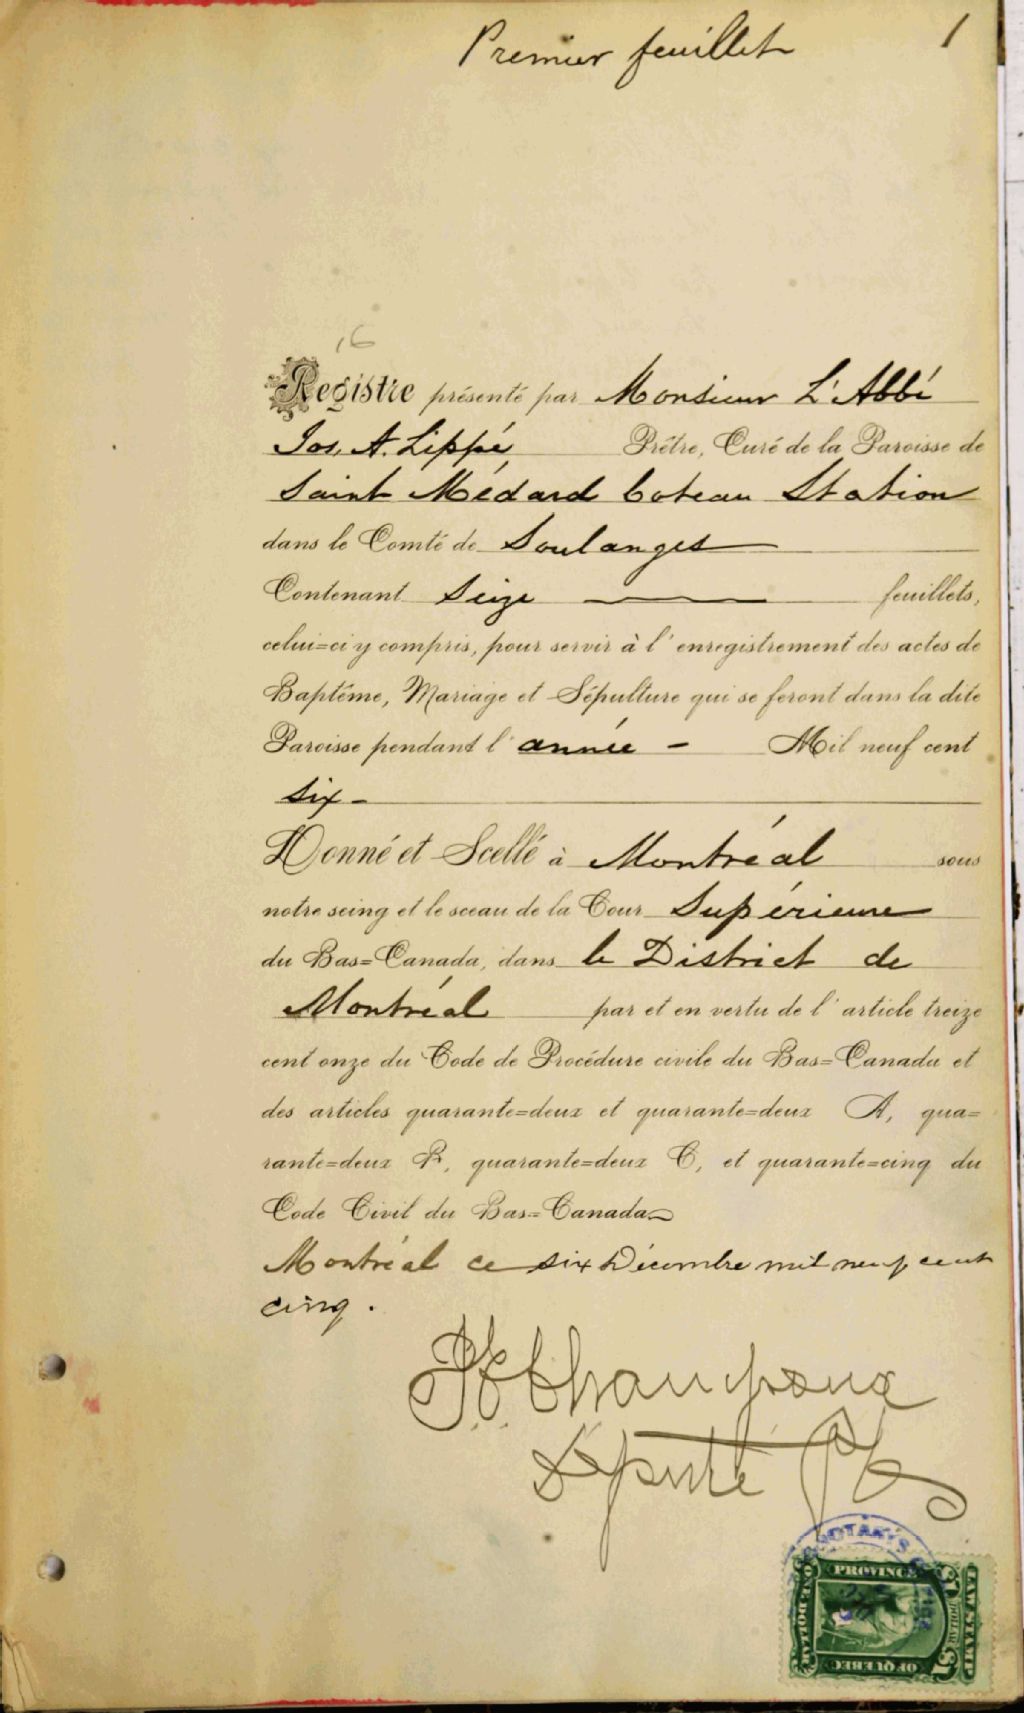 Premier feuillet 1
16
Registre présenté par Monsieur L'Abbé
Jos. A. Lippé, Prêtre, Curé de la Paroisse de
Saint Médard Coteau Station
dans le Comté de Soulanges
Contenant Seize feuillets,
celui=ci y compris, pour servir à l'enregistrement des actes de
Baptême, Mariage et Sépulture qui se feront dans la dite
Paroisse pendant l'année - Mil neuf cent
six -
Donné et Scellé à Montréal sous
notre seing et le sceau de la Cour Supérieure
du Bas=Canada, dans le District de
Montréal par et en vertu de l'article treize
cent onze du Code de Procédure civile du Bas=Canada et
des articles quarante=deux et quarante=deux A, qua=
rante=deux B, quarante=deux C, et quarante=cinq du
Code Civil du Bas=Canada
Montréal ce six Décembre mil neuf cent
cinq.
Champoux
Député
PROVINCE
OF QUEBEC
ONE DOLLAR
LAW STAMP